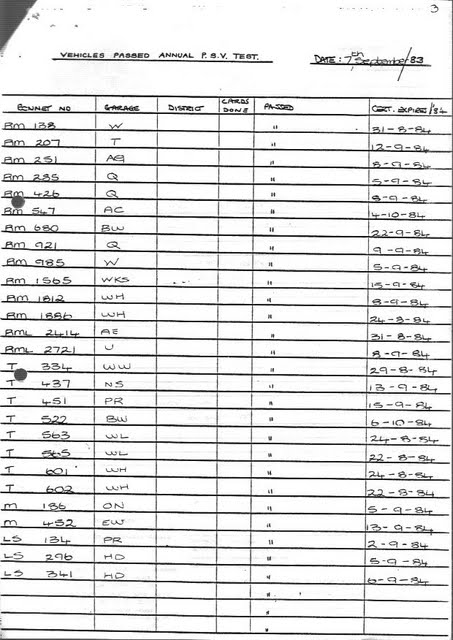 3
VEHICLES PASSED ANNUAL P.S.V. TEST. DATE: 7th September/83
BONNET NO GARAGE DISTRICT CARDS DONE PASSED CERT. EXPIRES/84
RM 138 W " 31-8-84
RM 207 T " 12-9-84
RM 251 AG " 8-9-84
RM 285 Q " 5-9-84
RM 426 Q " 8-9-84
RM 547 AC " 4-10-84
RM 680 BW " 22-9-84
RM 921 Q " 9-9-84
RM 985 W " 5-9-84
RM 1565 WKS " 15-9-84
RM 1812 WH " 8-9-84
RM 1886 WH " 24-8-84
RML 2414 AE " 31-8-84
RML 2721 U " 8-9-84
T 334 WW " 29-8-84
T 437 NS " 13-9-84
T 451 PR " 15-9-84
T 522 BW " 6-10-84
T 563 WL " 24-8-84
T 565 WL " 22-8-84
T 601 WH " 24-8-84
T 602 WH " 22-8-84
M 186 ON " 5-9-84
M 452 EW " 13-9-84
LS 134 PR " 2-9-84
LS 296 HD " 5-9-84
LS 341 HD " 6-9-84
"
"
"